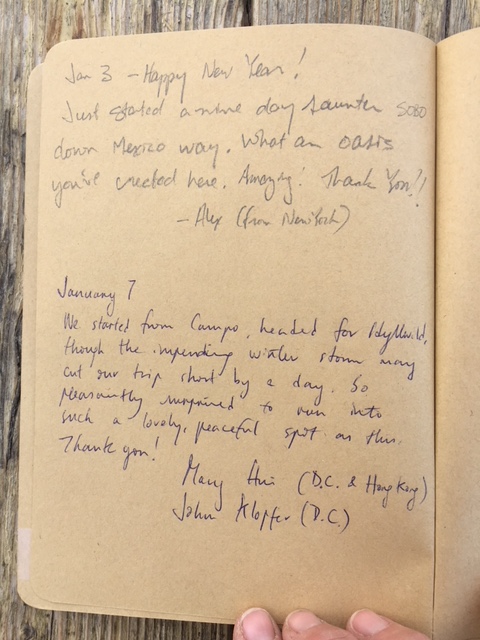 Jan 3 - Happy New Year!
Just started a nine day saunter SOBO
down Mexico way. What an oasis
you've created here. Amazing! Thank You!!
- Alex (from New York)
January 7
We started from Campo, headed for Idyllwild,
though the impending winter storm may
cut our trip short by a day. So
pleasantly surprised to run into
such a lovely, peaceful spot as this.
Thank you!
Mary Hui (D.C. & Hong Kong)
John Klopfer (D.C.)